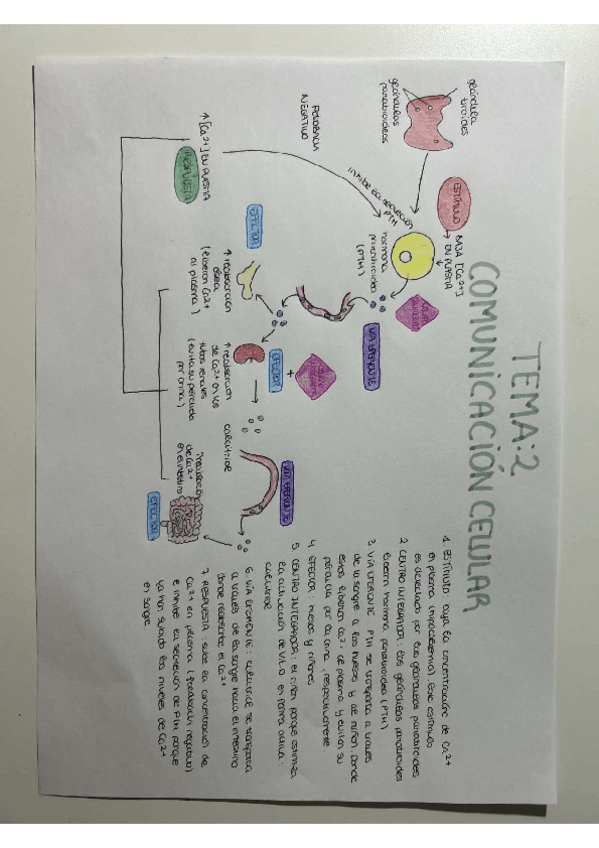 TEMA:2
COMUNICACIÓN CELULAR
glándula
tiroides
glándulas
paratiroideas
ESTÍMULO
BAJA [Ca2+]
EN PLASMA
inhibe la secreción
PTH
hormona
paratiroidea
(PTH)
VÍA EFERENTE
FEEDBACK
NEGATIVO
↑ [Ca2+] EN PLASMA
RESPUESTA
EFECTOR
↑ reabsorción
ósea
(liberan Ca2+
al plasma)
+
EFECTOR
↑ reabsorción
de Ca2+ en los
tubos renales
(evita su pérdida
por orina)
calcitriol
VÍA EFERENTE
↑ reabsorción
de Ca2+
en el intestino
EFECTOR
1. ESTÍMULO: baja la concentración de Ca2+
en plasma (hipocalcemia). Este estímulo
es detectado por las glándulas paratiroides
2. CENTRO INTEGRADOR: las glándulas paratiroides
liberan hormona paratiroidea (PTH)
3. VÍA EFERENTE: PTH se transporta a través
de la sangre a los huesos y al riñón. Donde
estos liberan Ca2+ al plasma y evitan su
pérdida por la orina, respectivamente
4. EFECTOR: huesos y riñones
5. CENTRO INTEGRADOR: el riñón porque estimula
la activación de vit.D en forma activa:
calcitriol
6. VÍA EFERENTE: calcitriol se transporta
a través de la sangre hacia el intestino
donde reabsorbe el Ca2+
7. RESPUESTA: sube la concentración de
Ca2+ en plasma (feedback negativo)
e inhibe la secreción de PTH porque
ya han subido los niveles de Ca2+
en sangre